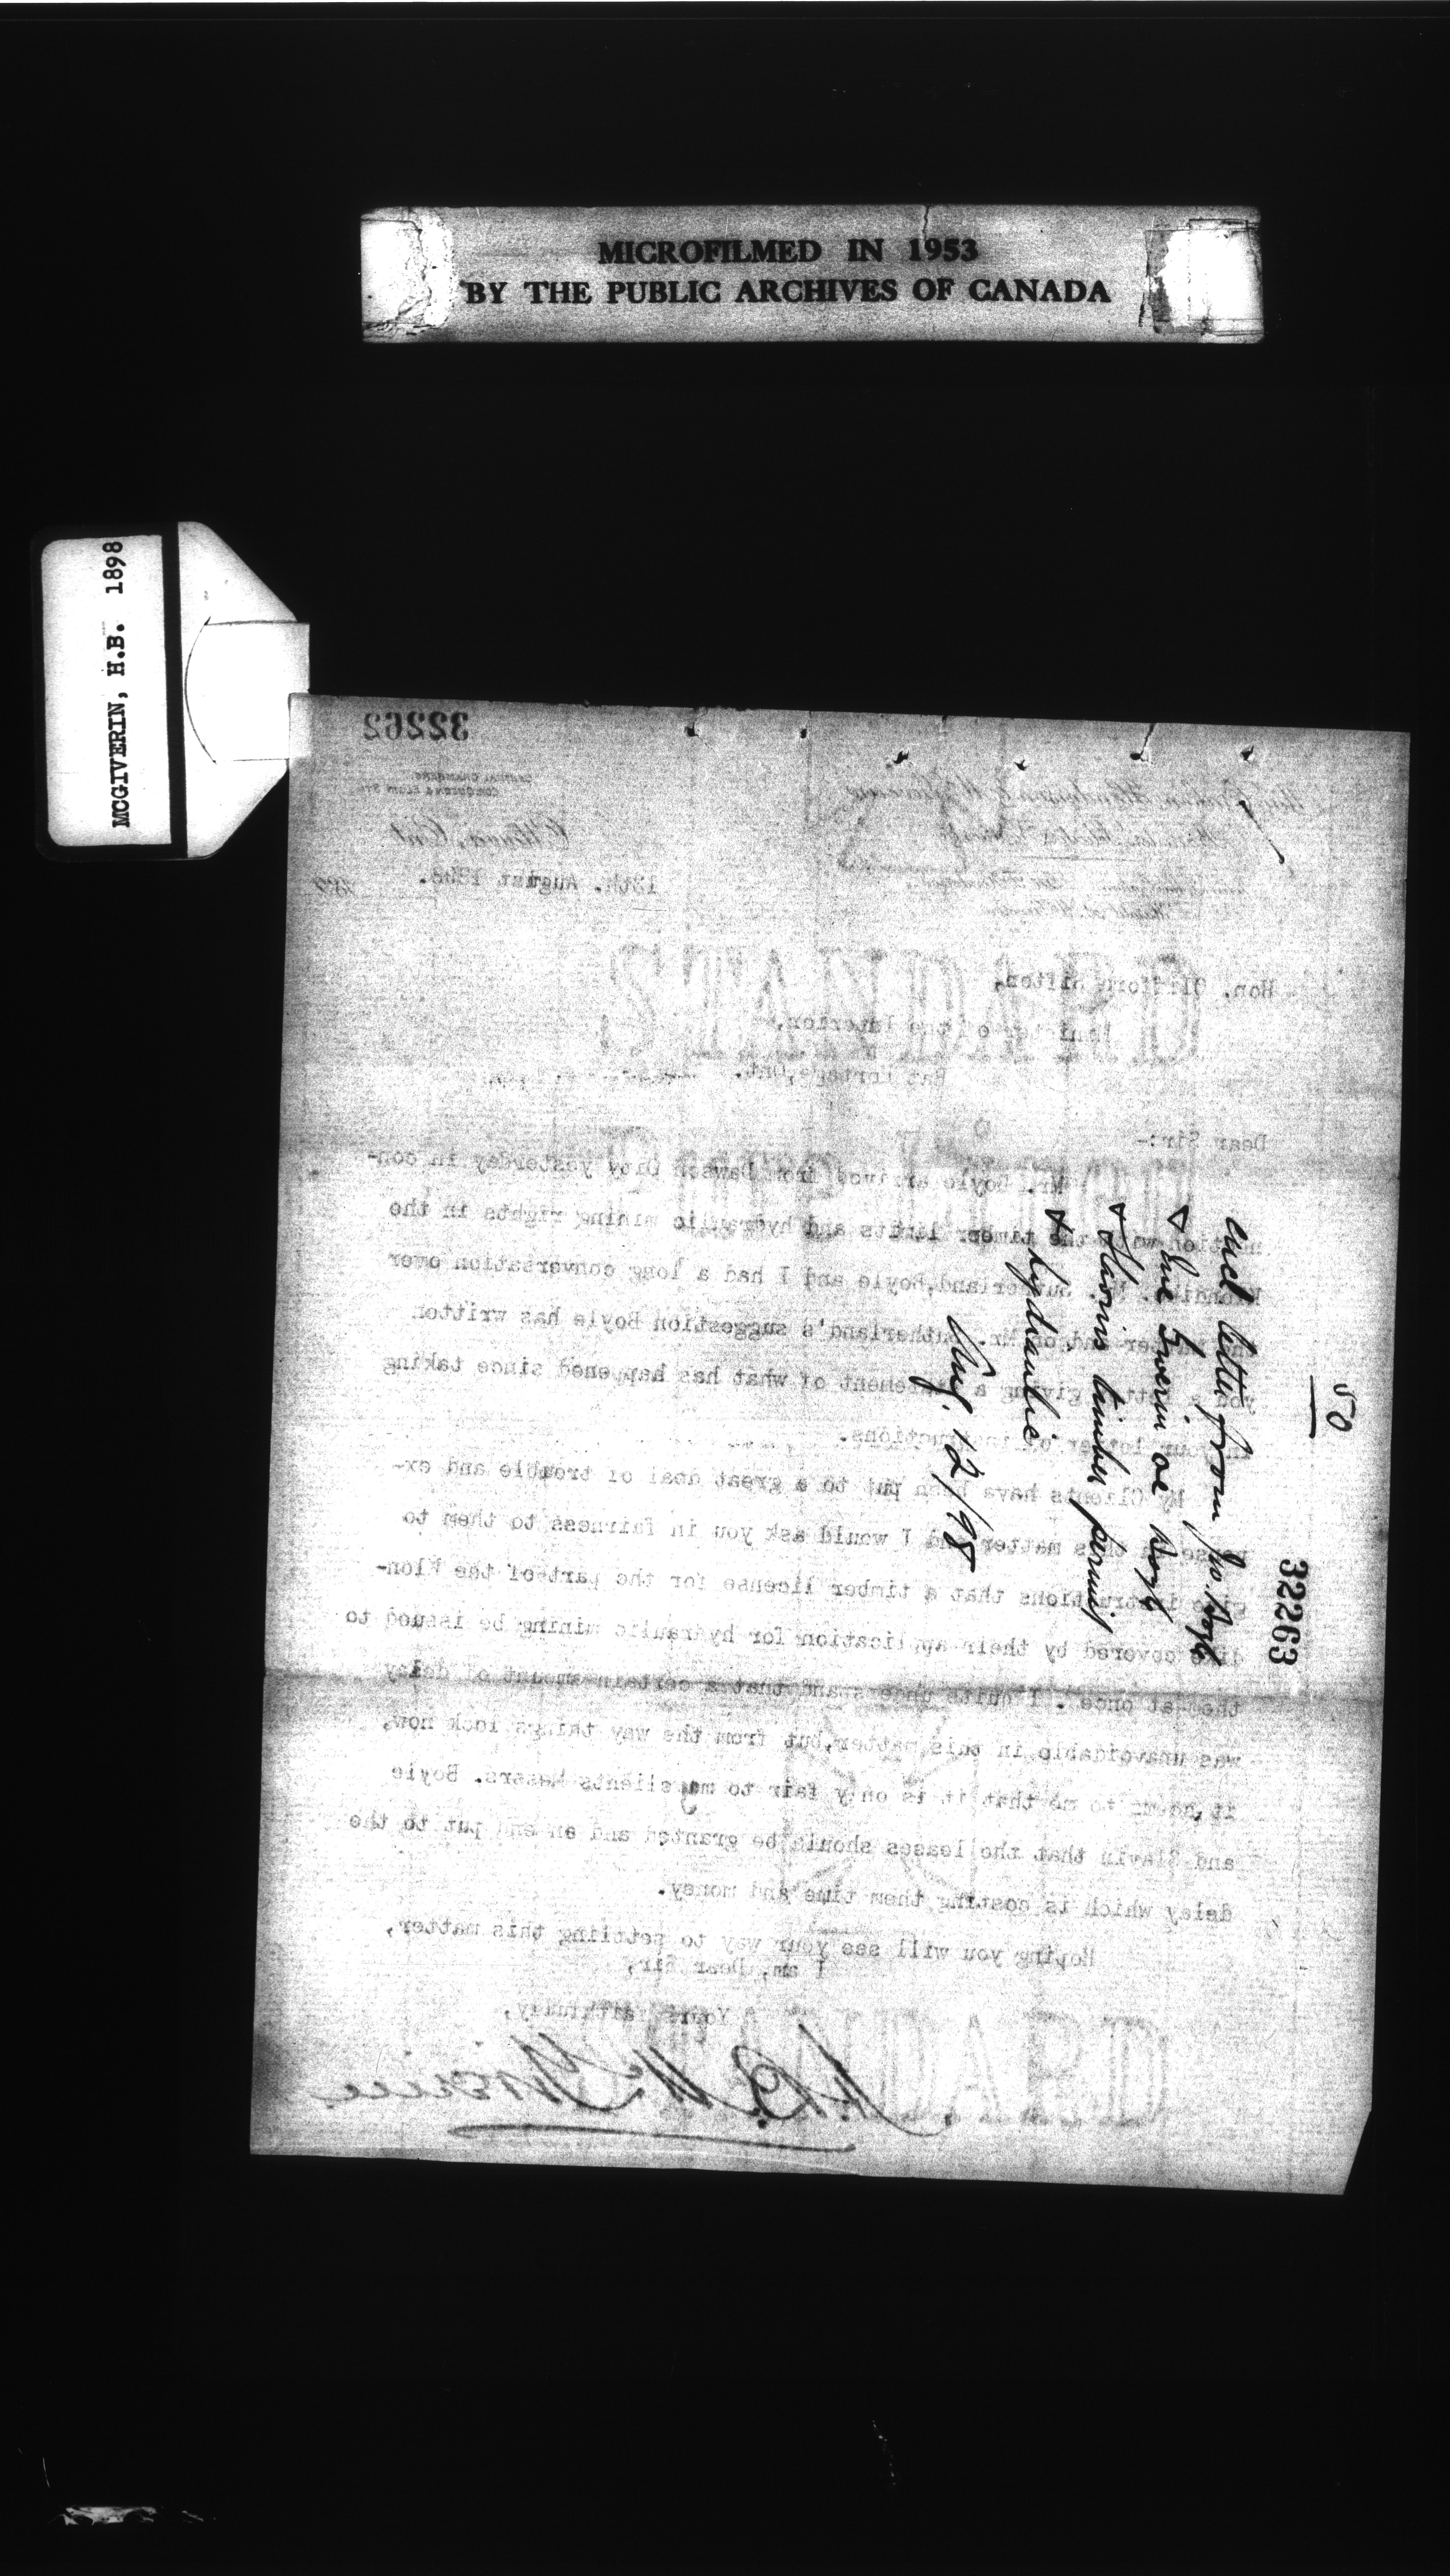 MICROFILMED IN 1953
BY THE PUBLIC ARCHIVES OF CANADA
MCGIVERIN, H.B. 1898
32262
Ottawa, Ont
12th. August 1898.
Hon. Clifford Sifton,
Minister of the Interior,
Rat Portage, Ont.
Dear Sir:-
Mr. Boyle arrived from Dawson City yesterday in con-
nection with the timber limits and hydraulic mining rights in the
Klondike. Mr. Sutherland, Boyle and I had a long conversation over
the matter and on Mr. Sutherland's suggestion Boyle has written
you a letter giving a statement of what has happened since taking
in your letter of instructions.
My Clients have been put to a great deal of trouble and ex-
pense in this matter and I would ask you in fairness to them to
give instructions that a timber license for the part of the Klon-
dike covered by their application for hydraulic mining be issued to
them at once. I quite understand that a certain amount of delay
was unavoidable in this matter, but from the way things look now,
it seems to me that it is only fair to my clients Messrs. Boyle
and Slavin that the leases should be granted and an end put to the
delay which is costing them time and money.
Hoping you will see your way to settling this matter,
I am, Dear Sir,
Yours faithfully,
H.B. McGiverin
50
32263
encl letter from Jo. Boyle
timber permit
& hydraulic
Aug. 12/98